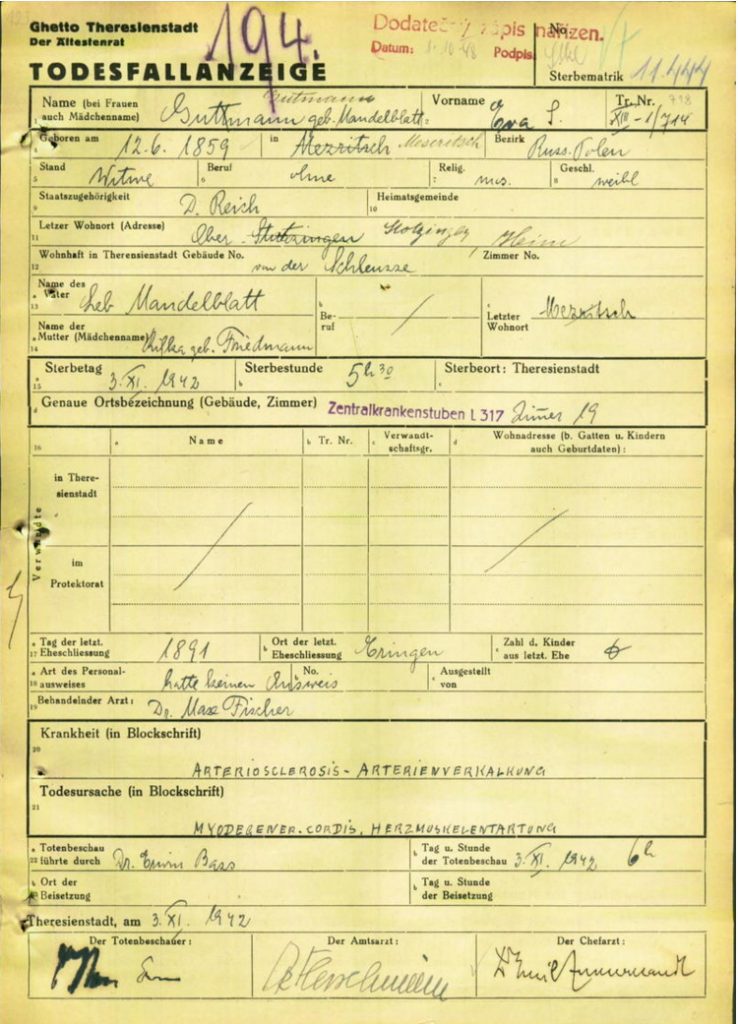 Ghetto Theresienstadt
Der Ältestenrat
TODESFALLANZEIGE
194.
Dodatečný zápis nařízen.
Datum: Podpis
No.
Sterbematrik 11.444
Name (bei Frauen auch Mädchenname) Guttmann Gutmann geb. Mandelblatt
Vorname Eva S.
Tr. Nr. XIII-1/714
Geboren am 12.6. 1859 in Mezritsch Meseritsch Bezirk Russ. Polen
Stand Witwe Beruf ohne Relig. mos. Geschl. weibl
Staatszugehörigkeit D. Reich Heimatsgemeinde
Letzer Wohnort (Adresse) Ober Stotzingen Stotzingen Heim
Wohnhaft in Theresienstadt Gebäude No. von der Schleusse Zimmer No.
Name des Vater Leb Mandelblatt Beruf / Letzter Wohnort Mezritsch
Name der Mutter (Mädchenname) Rifka geb. Friedmann
Sterbetag 3. XI. 1942 Sterbestunde 5h 30 Sterbeort: Theresienstadt
Genaue Ortsbezeichnung (Gebäude, Zimmer) Zentralkrankenstuben L 317 Zimer 19
Name Tr. Nr. Verwandtschaftsgr. Wohnadresse (b. Gatten u. Kindern auch Geburtdaten):
Verwandte
in Theresienstadt
im Protektorat
Tag der letzt. Eheschliessung 1891 Ort der letzt. Eheschliessung Zahl d. Kinder aus letzt. Ehe
Art des Personalausweises hatte keinen Ausweis No. Ausgestellt von
Behandelnder Arzt: Dr. Max Fischer
Krankheit (in Blockschrift)
ARTERIOSCLEROSIS - ARTERIENVERKALKUNG
Todesursache (in Blockschrift)
MYODEGENER. CORDIS, HERZMUSKELENTARTUNG
Totenbeschau führte durch Dr. Erwin Bass Tag u. Stunde der Totenbeschau 3. XI. 1942 6h
Ort der Beisetzung Tag u. Stunde der Beisetzung
Theresienstadt, am 3. XI. 1942
Der Totenbeschauer: Der Amtsarzt: Der Chefarzt: